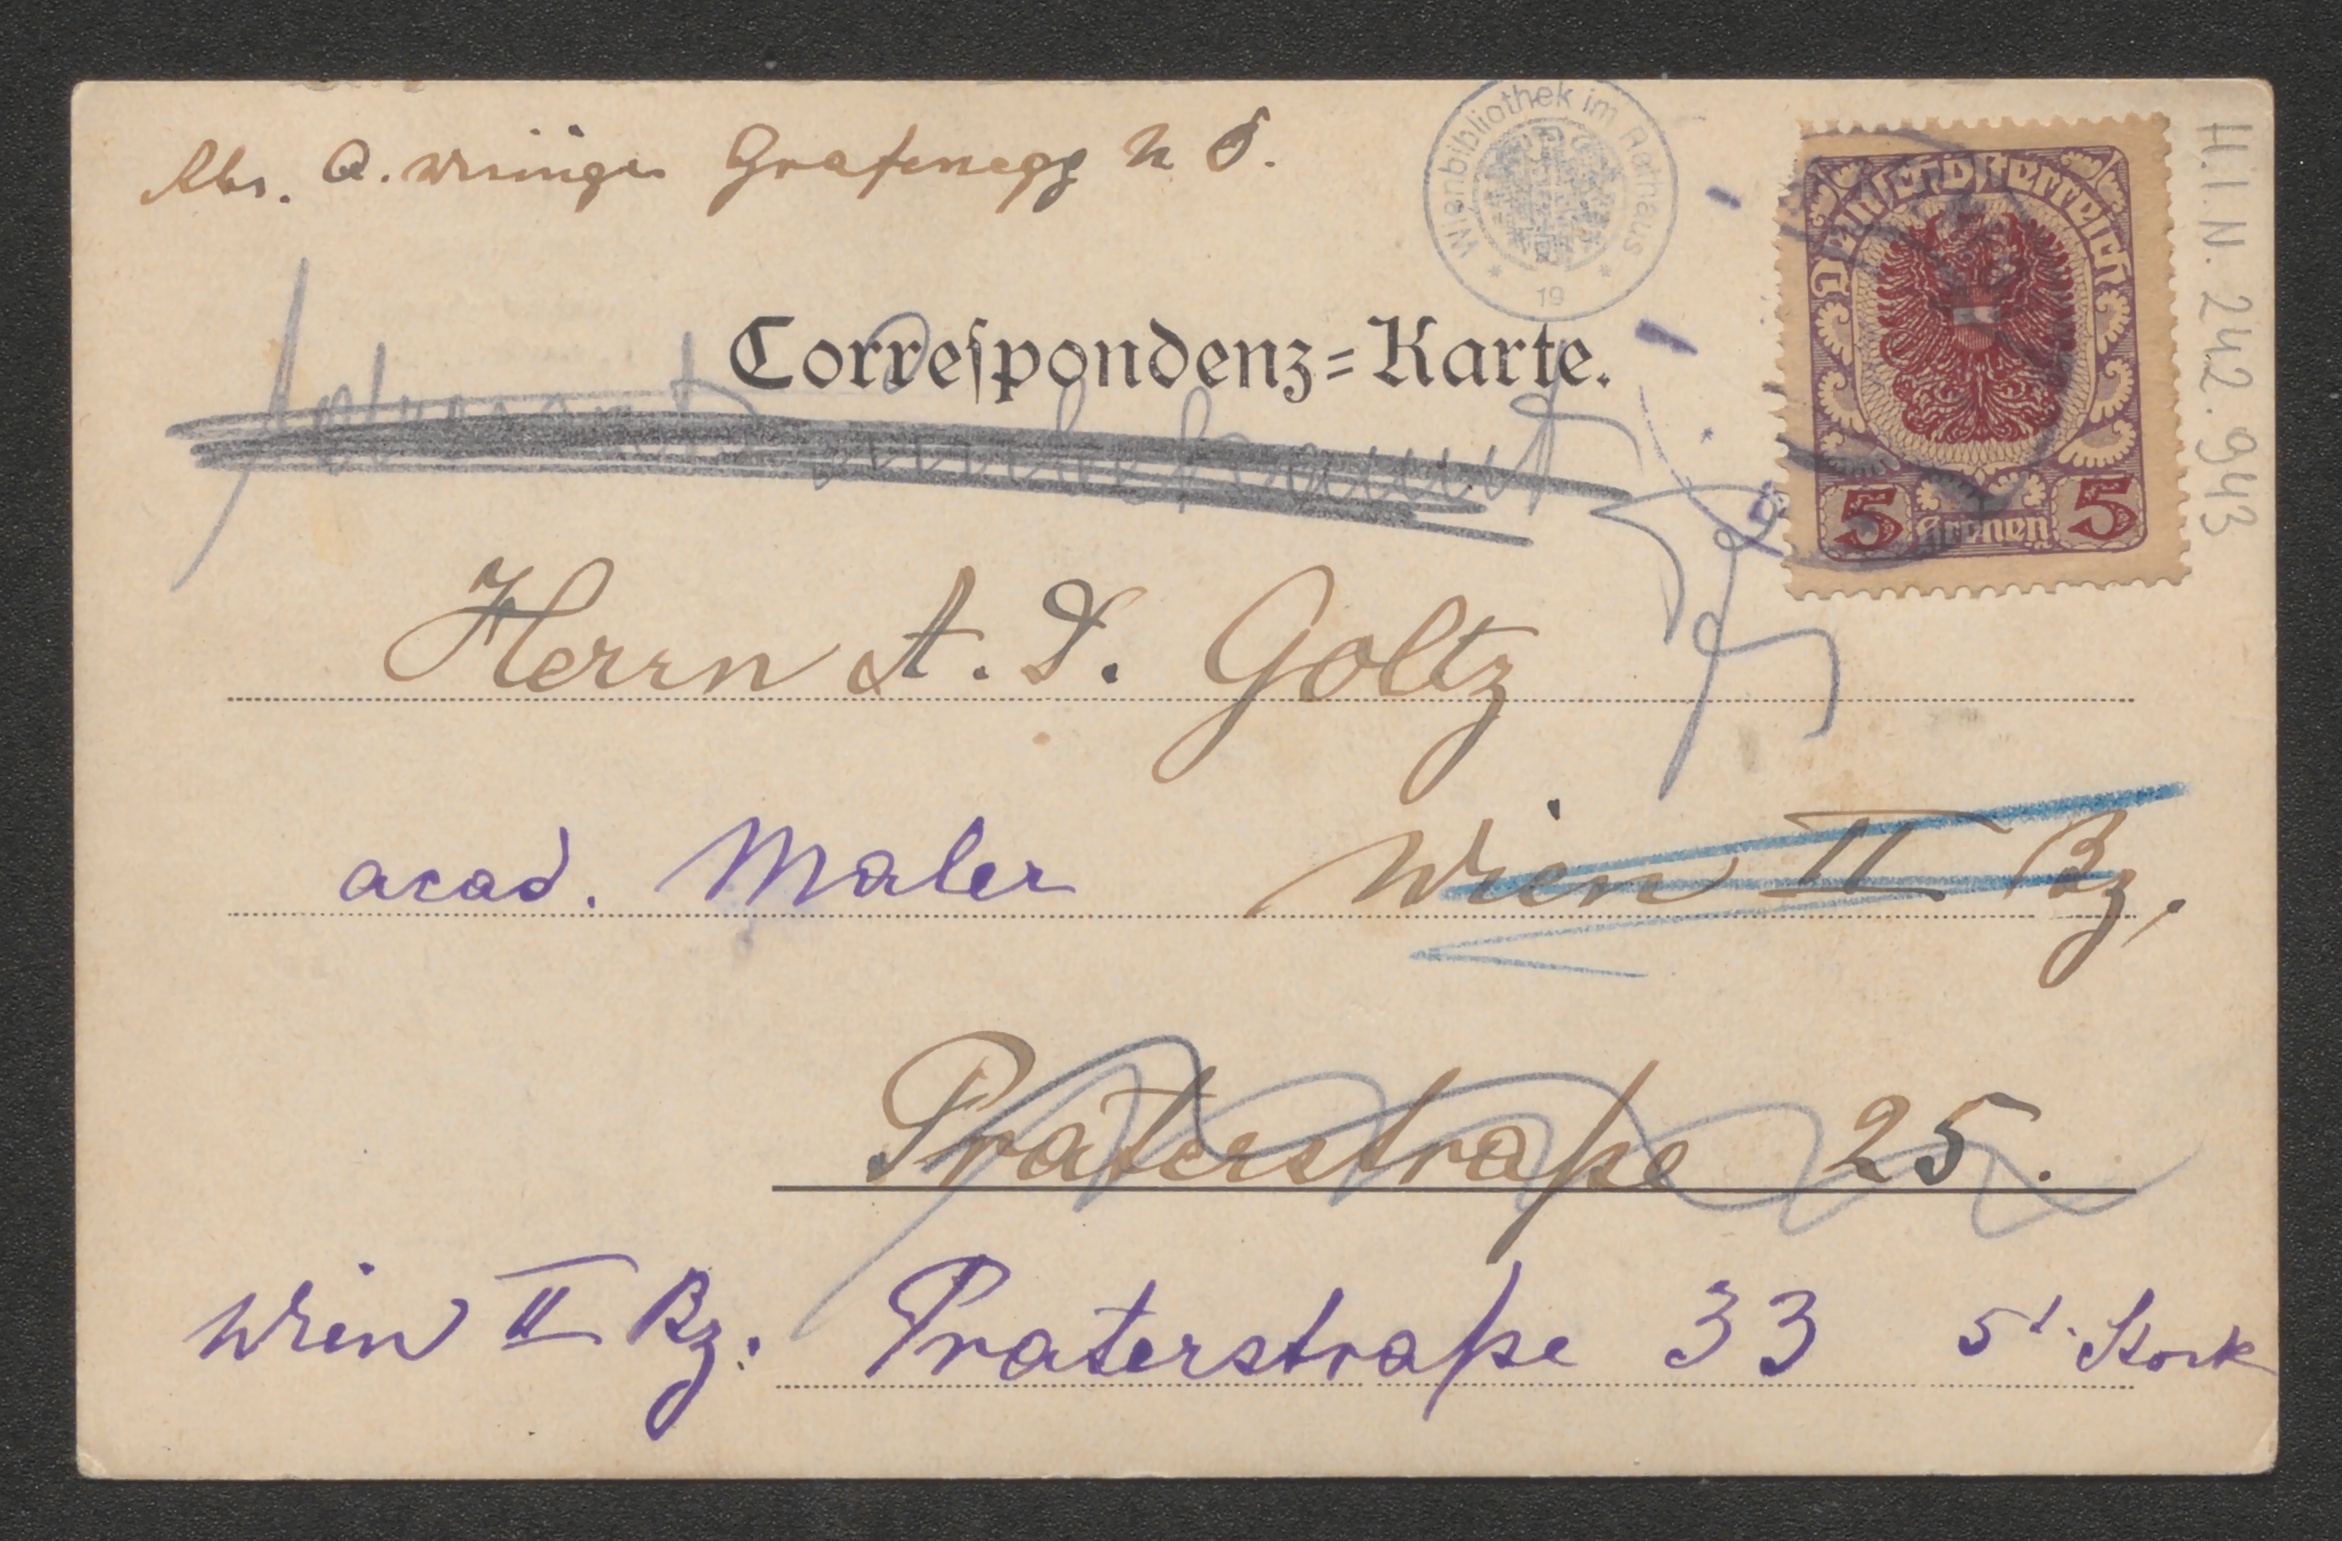 Abs. A. Weininger Grafenegg N Ö.
Wienbibliothek im Rathaus
19
Deutschösterreich
5 Kronen 5
H.I.N. 242.943
Correspondenz=Karte.
Adressat unbekannt
Herrn A. D. Goltz
acad. Maler Wien II Bz.
Praterstraße 25.
Wien II Bz. Praterstraße 33 5t. Stock